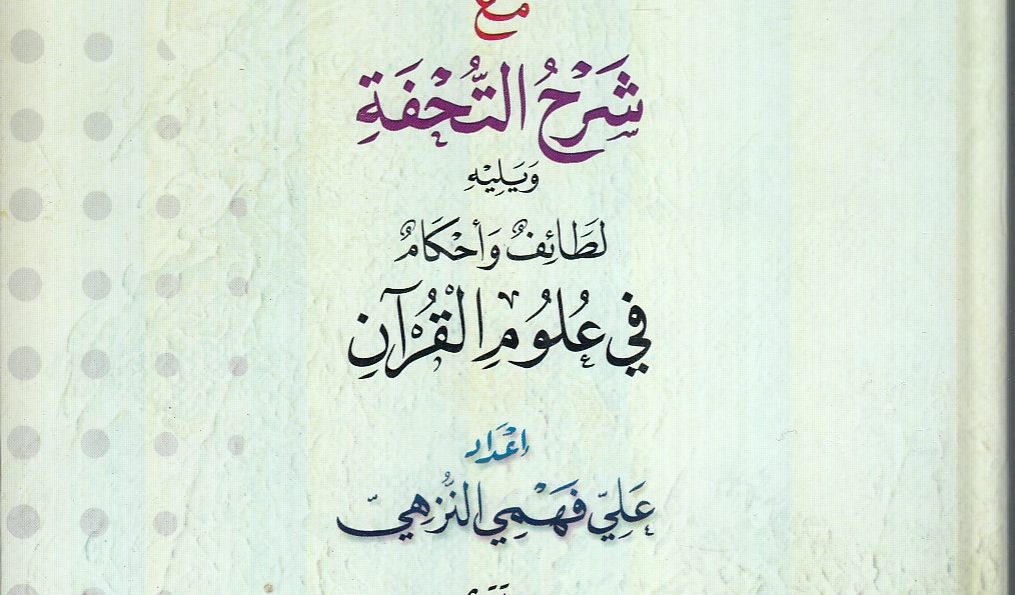 مع
شَرْحُ التُّحْفَةِ
وَيَلِيْهِ
لَطَائِفُ وَأَحْكَامُ
فِي عُلُومِ الْقُرْآنِ
إعْدَاد
عَلِيّ فَهْمِي النُّزهِيّ